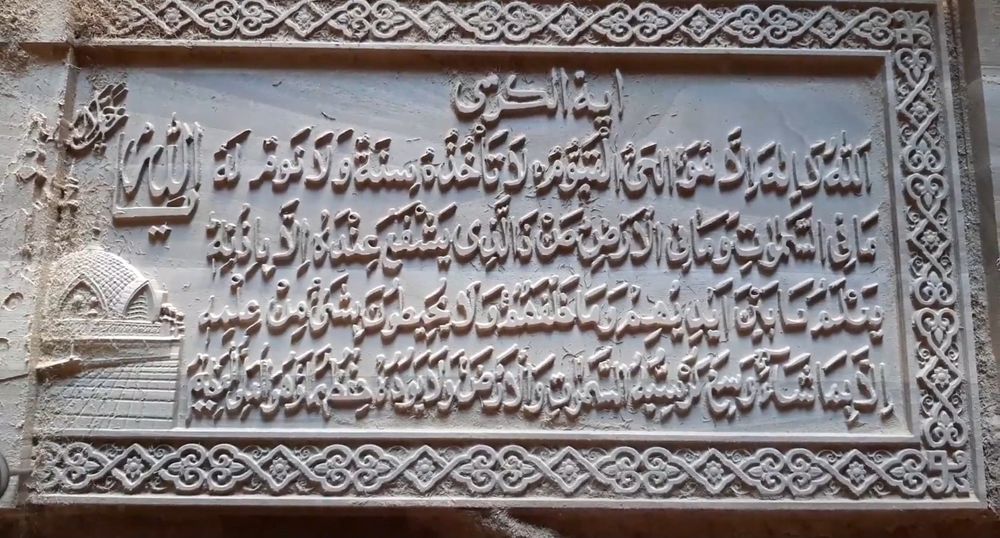 اية الكرسي
الله
اَللهُ لَا إِلٰهَ إِلَّا هُوَ الْحَيُّ الْقَيُّومُ لَا تَأْخُذُهُ سِنَةٌ وَلَا نَوْمٌ لَهُ
مَا فِي السَّمٰوَاتِ وَمَا فِي الْاَرْضِ مَنْ ذَا الَّذِي يَشْفَعُ عِنْدَهُ اِلَّا بِاِذْنِهِ
يَعْلَمُ مَا بَيْنَ اَيْدِيهِمْ وَمَا خَلْفَهُمْ وَلَا يُحِيطُونَ بِشَيْءٍ مِنْ عِلْمِهِ
اِلَّا بِمَا شَاءَ وَسِعَ كُرْسِيُّهُ السَّمٰوَاتِ وَالْاَرْضَ وَلَا يَؤُدُهُ حِفْظُهُمَا وَهُوَ الْعَلِيُّ الْعَظِيمُ